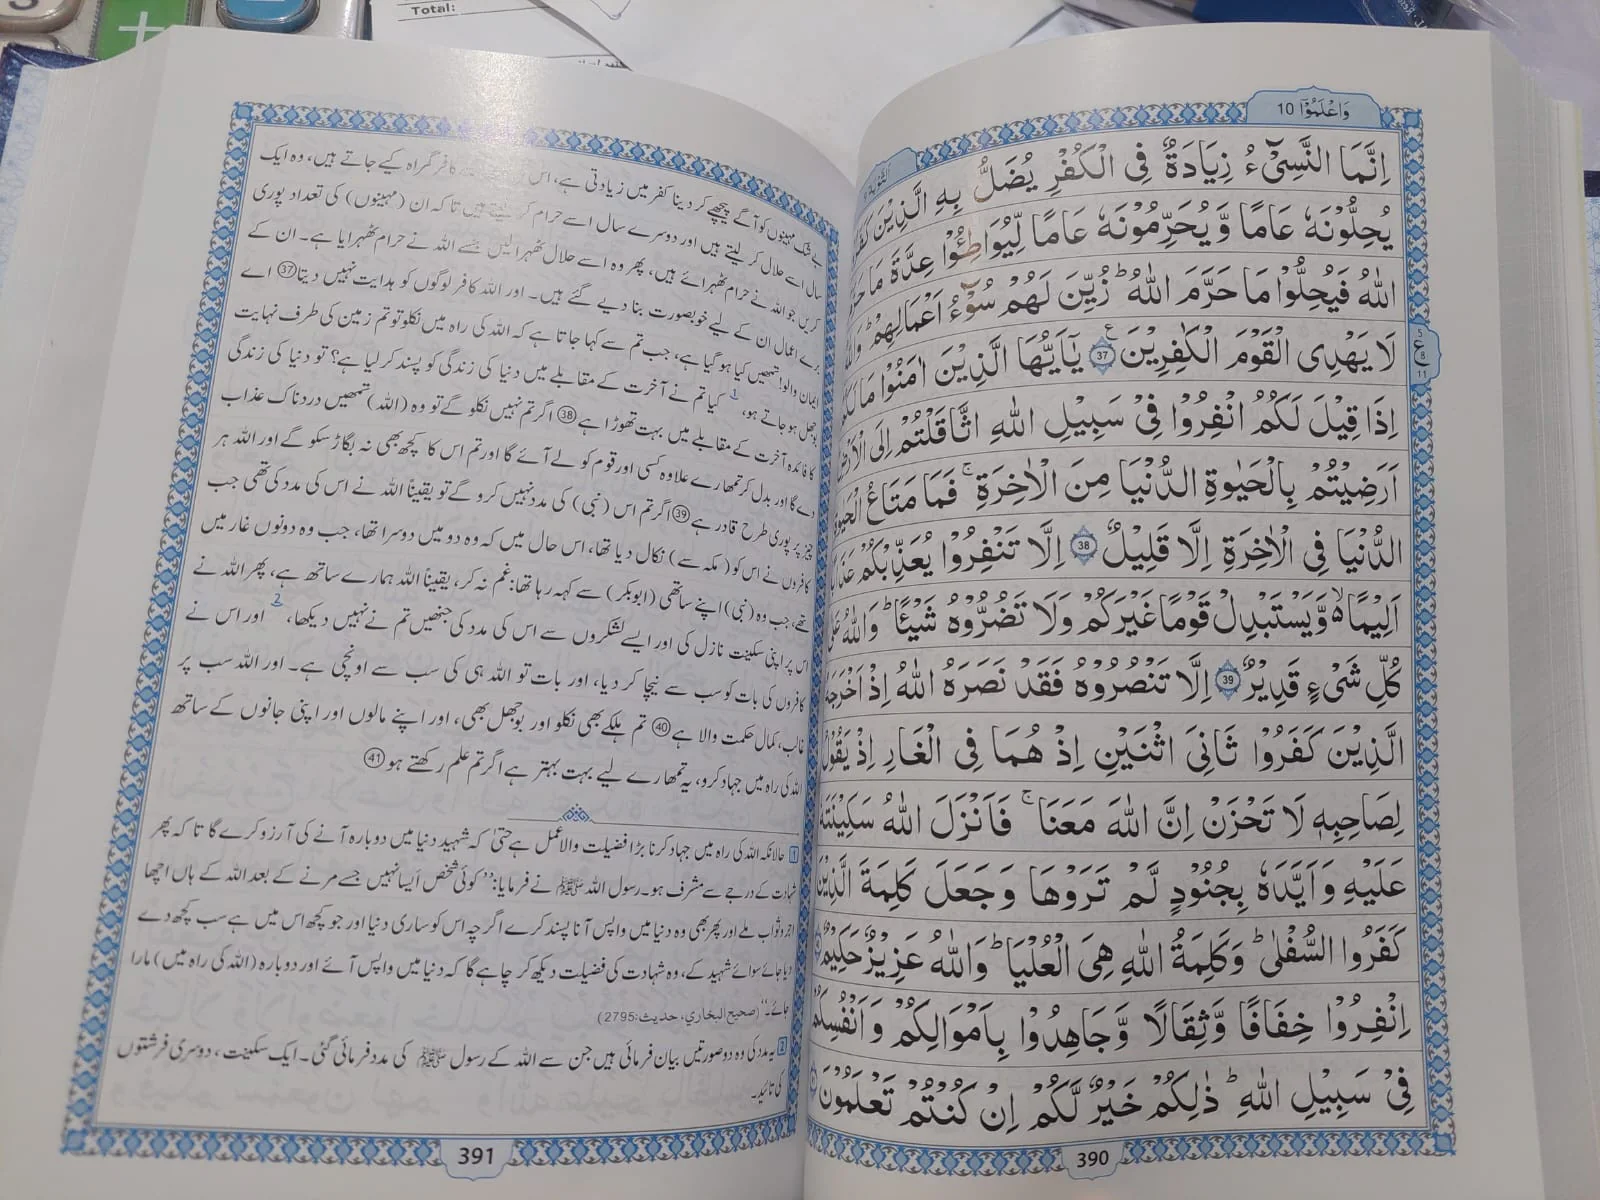 Total:
وَاعْلَمُوْۤا 10
التوبة 9
اِنَّمَا النَّسِیْٓءُ زِیَادَةٌ فِی الْكُفْرِ یُضَلُّ بِهِ الَّذِیْنَ
یُحِلُّوْنَهٗ عَامًا وَّیُحَرِّمُوْنَهٗ عَامًا لِّیُوَاطِـُٔوْا عِدَّةَ مَا
اللّٰهُ فَیُحِلُّوْا مَا حَرَّمَ اللّٰهُ ؕ زُیِّنَ لَهُمْ سُوْٓءُ اَعْمَالِهِمْ ؕ وَاللّٰهُ
لَا یَهْدِی الْقَوْمَ الْكٰفِرِیْنَ 37 یٰۤاَیُّهَا الَّذِیْنَ اٰمَنُوْا مَا لَكُمْ
5
ع
8
11
اِذَا قِیْلَ لَكُمُ انْفِرُوْا فِیْ سَبِیْلِ اللّٰهِ اثَّاقَلْتُمْ اِلَی الْاَرْضِ
اَرَضِیْتُمْ بِالْحَیٰوةِ الدُّنْیَا مِنَ الْاٰخِرَةِ ۚ فَمَا مَتَاعُ الْحَیٰوةِ
الدُّنْیَا فِی الْاٰخِرَةِ اِلَّا قَلِیْلٌ 38 اِلَّا تَنْفِرُوْا یُعَذِّبْكُمْ عَذَابًا
اَلِیْمًا ۙ۬ وَّیَسْتَبْدِلْ قَوْمًا غَیْرَكُمْ وَلَا تَضُرُّوْهُ شَیْـًٔا ؕ وَاللّٰهُ عَلٰی
كُلِّ شَیْءٍ قَدِیْرٌ 39 اِلَّا تَنْصُرُوْهُ فَقَدْ نَصَرَهُ اللّٰهُ اِذْ اَخْرَجَهُ
الَّذِیْنَ كَفَرُوْا ثَانِیَ اثْنَیْنِ اِذْ هُمَا فِی الْغَارِ اِذْ یَقُوْلُ
لِصَاحِبِهٖ لَا تَحْزَنْ اِنَّ اللّٰهَ مَعَنَا ۚ فَاَنْزَلَ اللّٰهُ سَكِیْنَتَهٗ
عَلَیْهِ وَاَیَّدَهٗ بِجُنُوْدٍ لَّمْ تَرَوْهَا وَجَعَلَ كَلِمَةَ الَّذِیْنَ
كَفَرُوا السُّفْلٰی ؕ وَكَلِمَةُ اللّٰهِ هِیَ الْعُلْیَا ؕ وَاللّٰهُ عَزِیْزٌ حَكِیْمٌ
اِنْفِرُوْا خِفَافًا وَّثِقَالًا وَّجَاهِدُوْا بِاَمْوَالِكُمْ وَاَنْفُسِكُمْ
فِیْ سَبِیْلِ اللّٰهِ ؕ ذٰلِكُمْ خَیْرٌ لَّكُمْ اِنْ كُنْتُمْ تَعْلَمُوْنَ
390
بے شک مہینوں کو آگے پیچھے کر دینا کفر میں زیادتی ہے، اس کافر گمراہ کیے جاتے ہیں، وہ ایک
سال اسے حلال کر لیتے ہیں اور دوسرے سال اسے حرام کر لیتے ہیں تاکہ ان (مہینوں) کی تعداد پوری
کریں جو اللہ نے حرام ٹھہرائے ہیں، پھر وہ اسے حلال ٹھہرا لیں جسے اللہ نے حرام ٹھہرایا ہے۔ ان کے
برے اعمال ان کے لیے خوبصورت بنا دیے گئے ہیں۔ اور اللہ کافر لوگوں کو ہدایت نہیں دیتا 37 اے
ایمان والو! تمھیں کیا ہو گیا ہے، جب تم سے کہا جاتا ہے کہ اللہ کی راہ میں نکلو تو تم زمین کی طرف نہایت
بوجھل ہو جاتے ہو، 1 کیا تم نے آخرت کے مقابلے میں دنیا کی زندگی کو پسند کر لیا ہے؟ تو دنیا کی زندگی
کا فائدہ آخرت کے مقابلے میں بہت تھوڑا ہے 38 اگر تم نہیں نکلو گے تو وہ (اللہ) تمھیں دردناک عذاب
دے گا اور بدل کر تمھارے علاوہ کسی اور قوم کو لے آئے گا اور تم اس کا کچھ بھی نہ بگاڑ سکو گے اور اللہ ہر
چیز پر پوری طرح قادر ہے 39 اگر تم اس (نبی) کی مدد نہیں کرو گے تو یقیناً اللہ نے اس کی مدد کی تھی جب
کافروں نے اس کو (مکہ سے) نکال دیا تھا، اس حال میں کہ وہ دو میں دوسرا تھا، جب وہ دونوں غار میں
تھے، جب وہ (نبی) اپنے ساتھی (ابوبکر) سے کہہ رہا تھا: غم نہ کر، یقیناً اللہ ہمارے ساتھ ہے، پھر اللہ نے
اس پر اپنی سکینت نازل کی اور ایسے لشکروں سے اس کی مدد کی جنھیں تم نے نہیں دیکھا، 2 اور اس نے
کافروں کی بات کو سب سے نیچا کر دیا، اور بات تو اللہ ہی کی سب سے اونچی ہے۔ اور اللہ سب پر
غالب، کمال حکمت والا ہے 40 تم ہلکے بھی نکلو اور بوجھل بھی، اور اپنے مالوں اور اپنی جانوں کے ساتھ
اللہ کی راہ میں جہاد کرو، یہ تمھارے لیے بہت بہتر ہے اگر تم علم رکھتے ہو 41
1 حالانکہ اللہ کی راہ میں جہاد کرنا بڑا فضیلت والا عمل ہے حتیٰ کہ شہید دنیا میں دوبارہ آنے کی آرزو کرے گا تاکہ پھر
شہادت کے درجے سے مشرف ہو۔ رسول اللہ ﷺ نے فرمایا: ”کوئی شخص ایسا نہیں جسے مرنے کے بعد اللہ کے ہاں اچھا
اجر و ثواب ملے اور پھر بھی وہ دنیا میں واپس آنا پسند کرے اگرچہ اس کو ساری دنیا اور جو کچھ اس میں ہے سب کچھ دے
دیا جائے سوائے شہید کے، وہ شہادت کی فضیلت دیکھ کر چاہے گا کہ دنیا میں واپس آئے اور دوبارہ (اللہ کی راہ میں) مارا
جائے۔“ (صحیح البخاري، حدیث: 2795)
2 یہ مدد کی وہ دو صورتیں بیان فرمائی ہیں جن سے اللہ کے رسول ﷺ کی مدد فرمائی گئی۔ ایک سکینت، دوسری فرشتوں
کی تائید۔
391